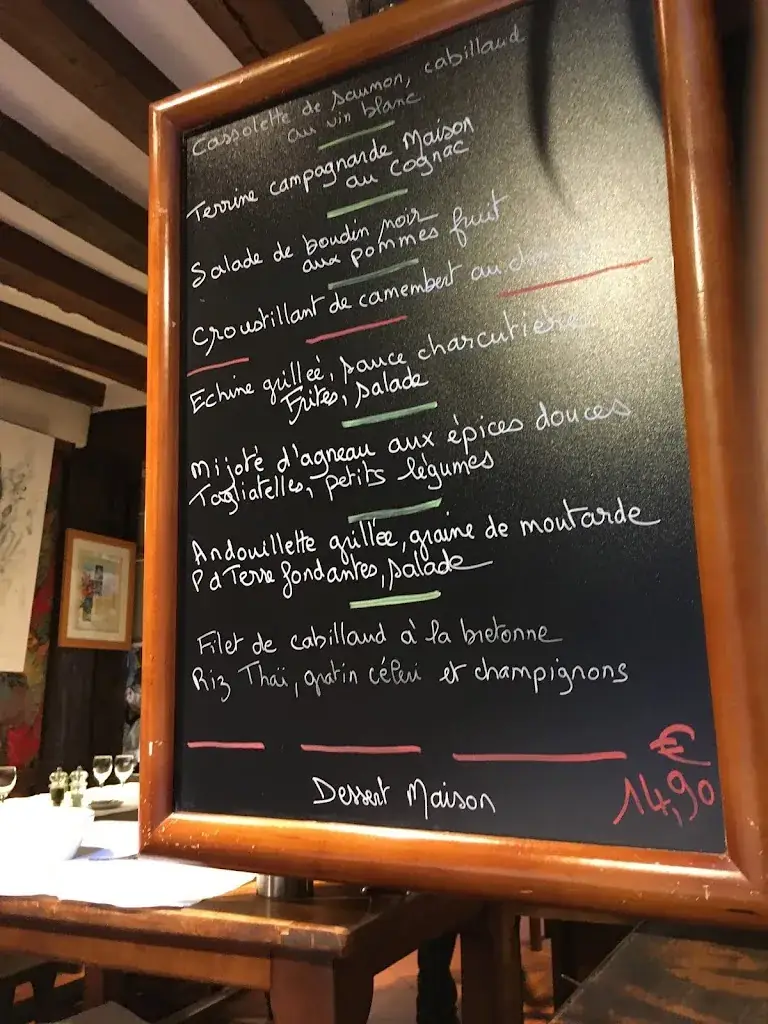 Cassolette de saumon, cabillaud
au vin blanc
Terrine campagnarde Maison
au Cognac
Salade de boudin noir
aux pommes fruit
Croustillant de camembert au
Echine grilleé, sauce charcutière
Frites, salade
Mijoté d'agneau aux épices douces
Tagliatelles, petits légumes
Andouillette grillée, graine de moutarde
P d Terre fondantes, salade
Filet de cabillaud à la bretonne
Riz Thaï, gratin céleri et champignons
€
14,90
Dessert Maison